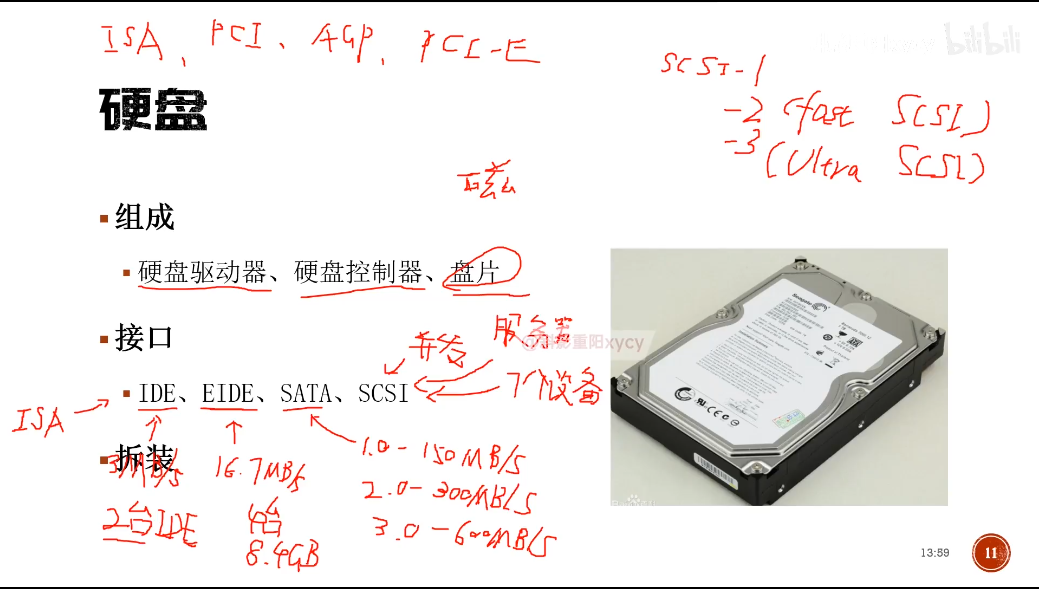 ISA、PCI、AGP、PCI-E
bilibili
SCSI-1
-2 (fast SCSI)
-3 (Ultra SCSI)
硬盘
磁
▪组成
▪硬盘驱动器、硬盘控制器、盘片
▪接口
服务器
重阳xycy
并发
▪IDE、EIDE、SATA、SCSI
7个设备
ISA
▪拆装
3MB/s
16.7MB/s
1.0-150MB/s
2.0-300MB/s
3.0-600MB/s
2台IDE
4台
8.4GB
Seagate
SATA
13:59
11